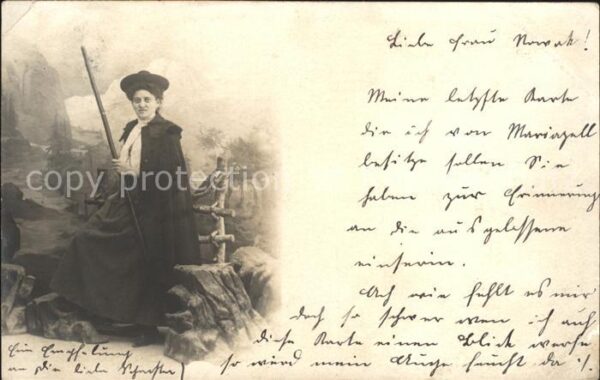 Liebe Frau Nowak!
Meine letzte Karte
die ich von Mariazell
besitze sollen Sie
haben zur Erinnerung
an die ausgelassene
einserin.
Ach wie fehlt es mir
doch so schwer wen ich auf
diese Karte einen Blick werfe
so wird mein Auge feucht da
Eine Empfehlung
an die liebe Schwester
copy protection